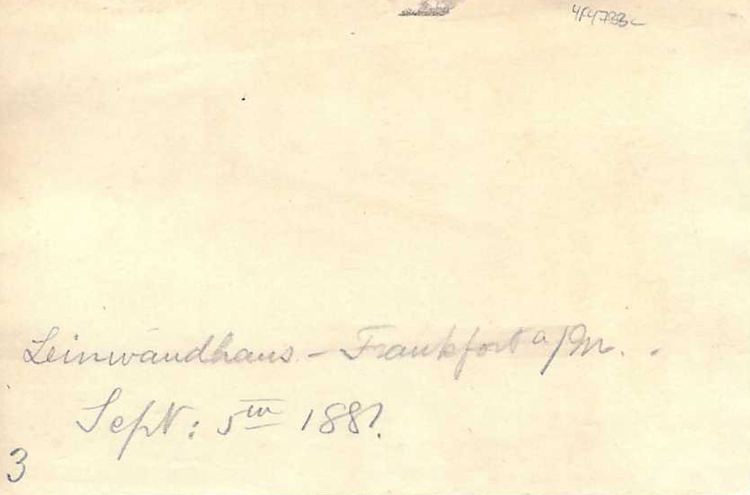 4F4733c
Leinwandhaus – Frankfort a/M.
Sept: 5th 1881.
3